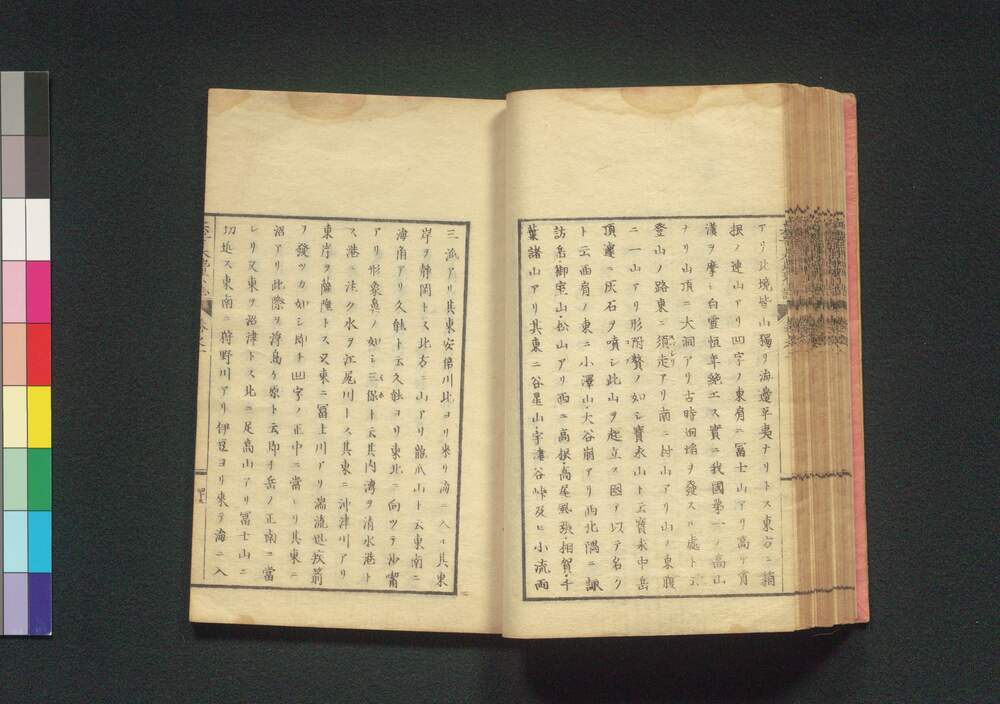 アリ北境皆山獨リ海邊平夷ナリトス東方ニ箱
根ノ連山アリ凹字ノ東肩ニ冨士山アリ高ヿ霄
漢ヲ摩シ白雪恒年絶エス實ニ我國第一ノ高山
ナリ山頂ニ大洞アリ古時回焔ヲ發スル處ト云
登山ノ路東ニ須走アリ南ニ村山アリ山ノ東腹
ニ一山アリ形附贅ノ如シ寶永山ト云寶永中岳
頂邊ニ灰石ヲ噴シ此山ヲ起立ス因テ以テ名ク
ト云西肩ノ東ニ小澤山・大谷崩アリ西北隅ニ諏
訪岳・御室山・松山アリ西ニ高根・高尾・風張・相賀・千
葉諸山アリ其東ニ谷星山・宇津谷峠及ヒ小流兩
三派アリ其東安倍川北ヨリ来リ海ニ入ル其東
岸ヲ静岡トス此方ニ山アリ龍爪山ト云東南ニ
海角アリ久能ト云久能ヨリ東北ニ向ツテ沙觜
アリ形象鼻ノ如シ三保ト云其内湾ヲ清水港ト
ス港ニ注ク水ヲ江尾川トス其東ニ沖津川アリ
東岸ヲ薩陲トス又東ニ冨士川アリ湍流迅疾箭
ヲ發ツカ如シ即チ凹字ノ正中ニ當レリ其東ニ
沼アリ此際ヲ浮島ケ原ト云即チ岳ノ正南ニ當
レリ又東ヲ沼津トス北ニ足高山アリ冨士山ニ
切近ス東南ニ狩野川アリ伊豆ヨリ来テ海ニ入